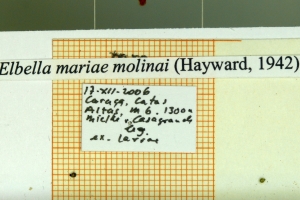 Elbella mariae molinai (Hayward, 1942)
17-XII-2006
Caraça, Catas
Altas, MG. 1300m
Mielke & Casagrande
leg.
ex. larvae